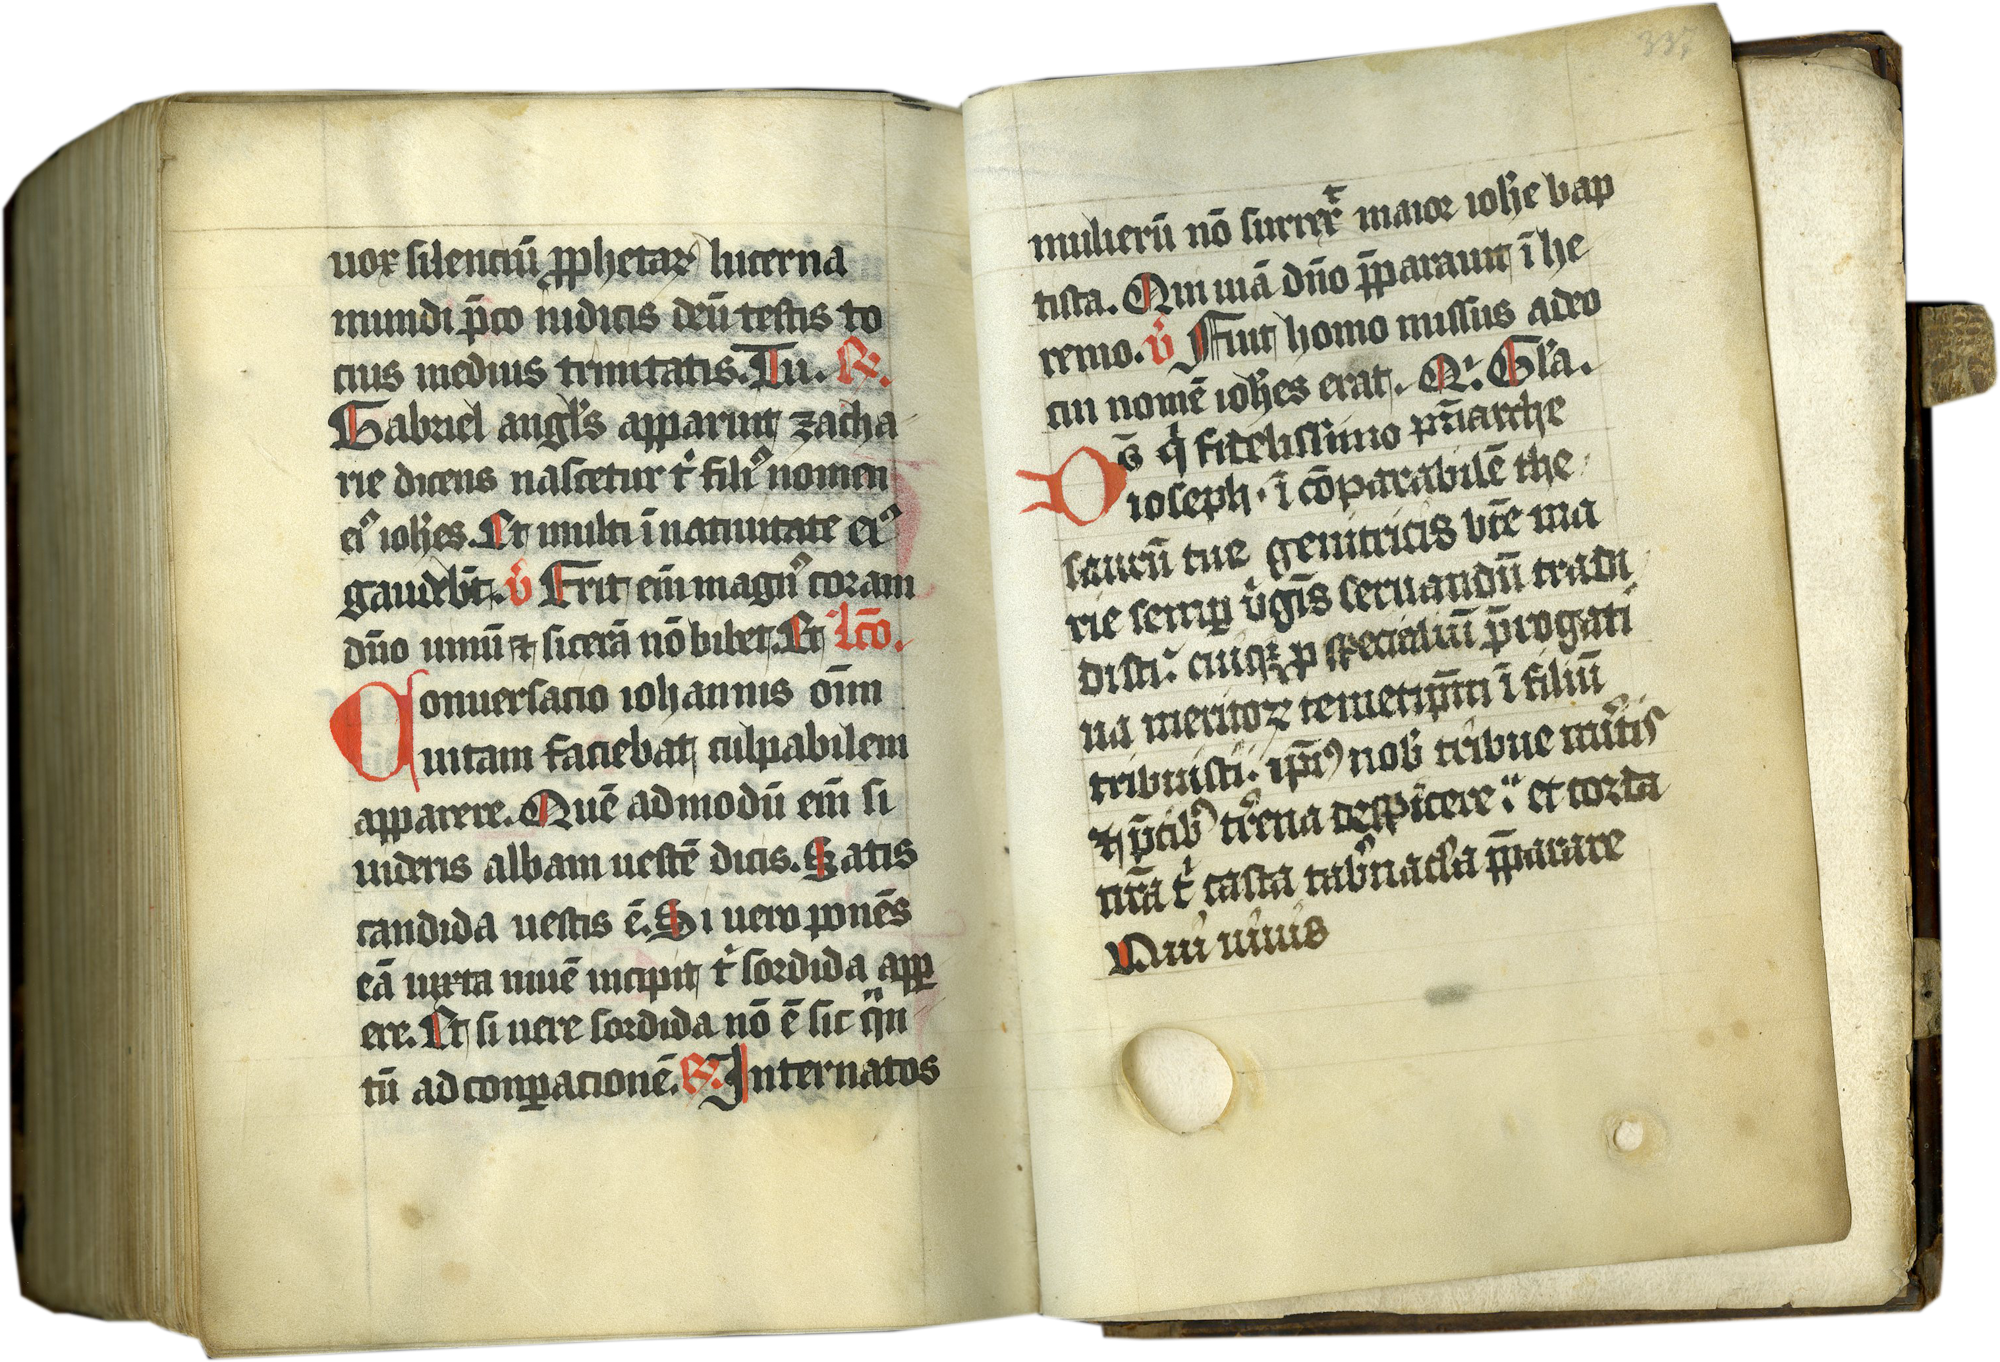 uox silenciū ꝓphetaꝝ lucerna
mundi p̄co iudicis deū testis to
cius medius trinitatis. Tu. ℟.
Gabriel angl's apparuit zacha
rie dicens nascetur t' filiꝰ nomen
eiꝰ ioh'es. Et multi ī natiuitate eiꝰ
gaudeb't. v̓ Erit em̄ magnꝰ coram
dn̄o uinū ⁊ sicerā nō bibet. Et lc̄o.
Conuersacio iohannis om̄
uitam faciebat culpabilem
apparere. Quē admodū em̄ si
uideris albam uestē dicis. Satis
candida uestis ē. Si uero ponēs
eā iuxta niuē incipit t' sordida apꝑ
ere. Et si uere sordida nō ē sic qn̄
tū ad conꝑacionē. ℟. Internatos
337
mulierū nō surrex̓ maior ioh'e bap
tista. Qui uiā dn̄o p̄parauit ī he
remo. v̓ Fuit homo missus a deo
cui nomē ioh'es erat. Q'. Gl'a.
Ds̄ q' fidelissimo pr̄iarche
ioseph. ī cōparabilē the
saurū tue genitricis vr̄e ma
rie semꝑ v'gīs seruandū tradi
disti: cuiusqꝫ p specialiū p̄rogati
ua meritoꝝ temetip̄m ī filiū
tribuisti: ip̄iꝰ nob' tribue
p̄cibꝰ tr'ena despicere: et corda
nr̄a t' casta tab'nac'la p̄parare
Qui uiuis